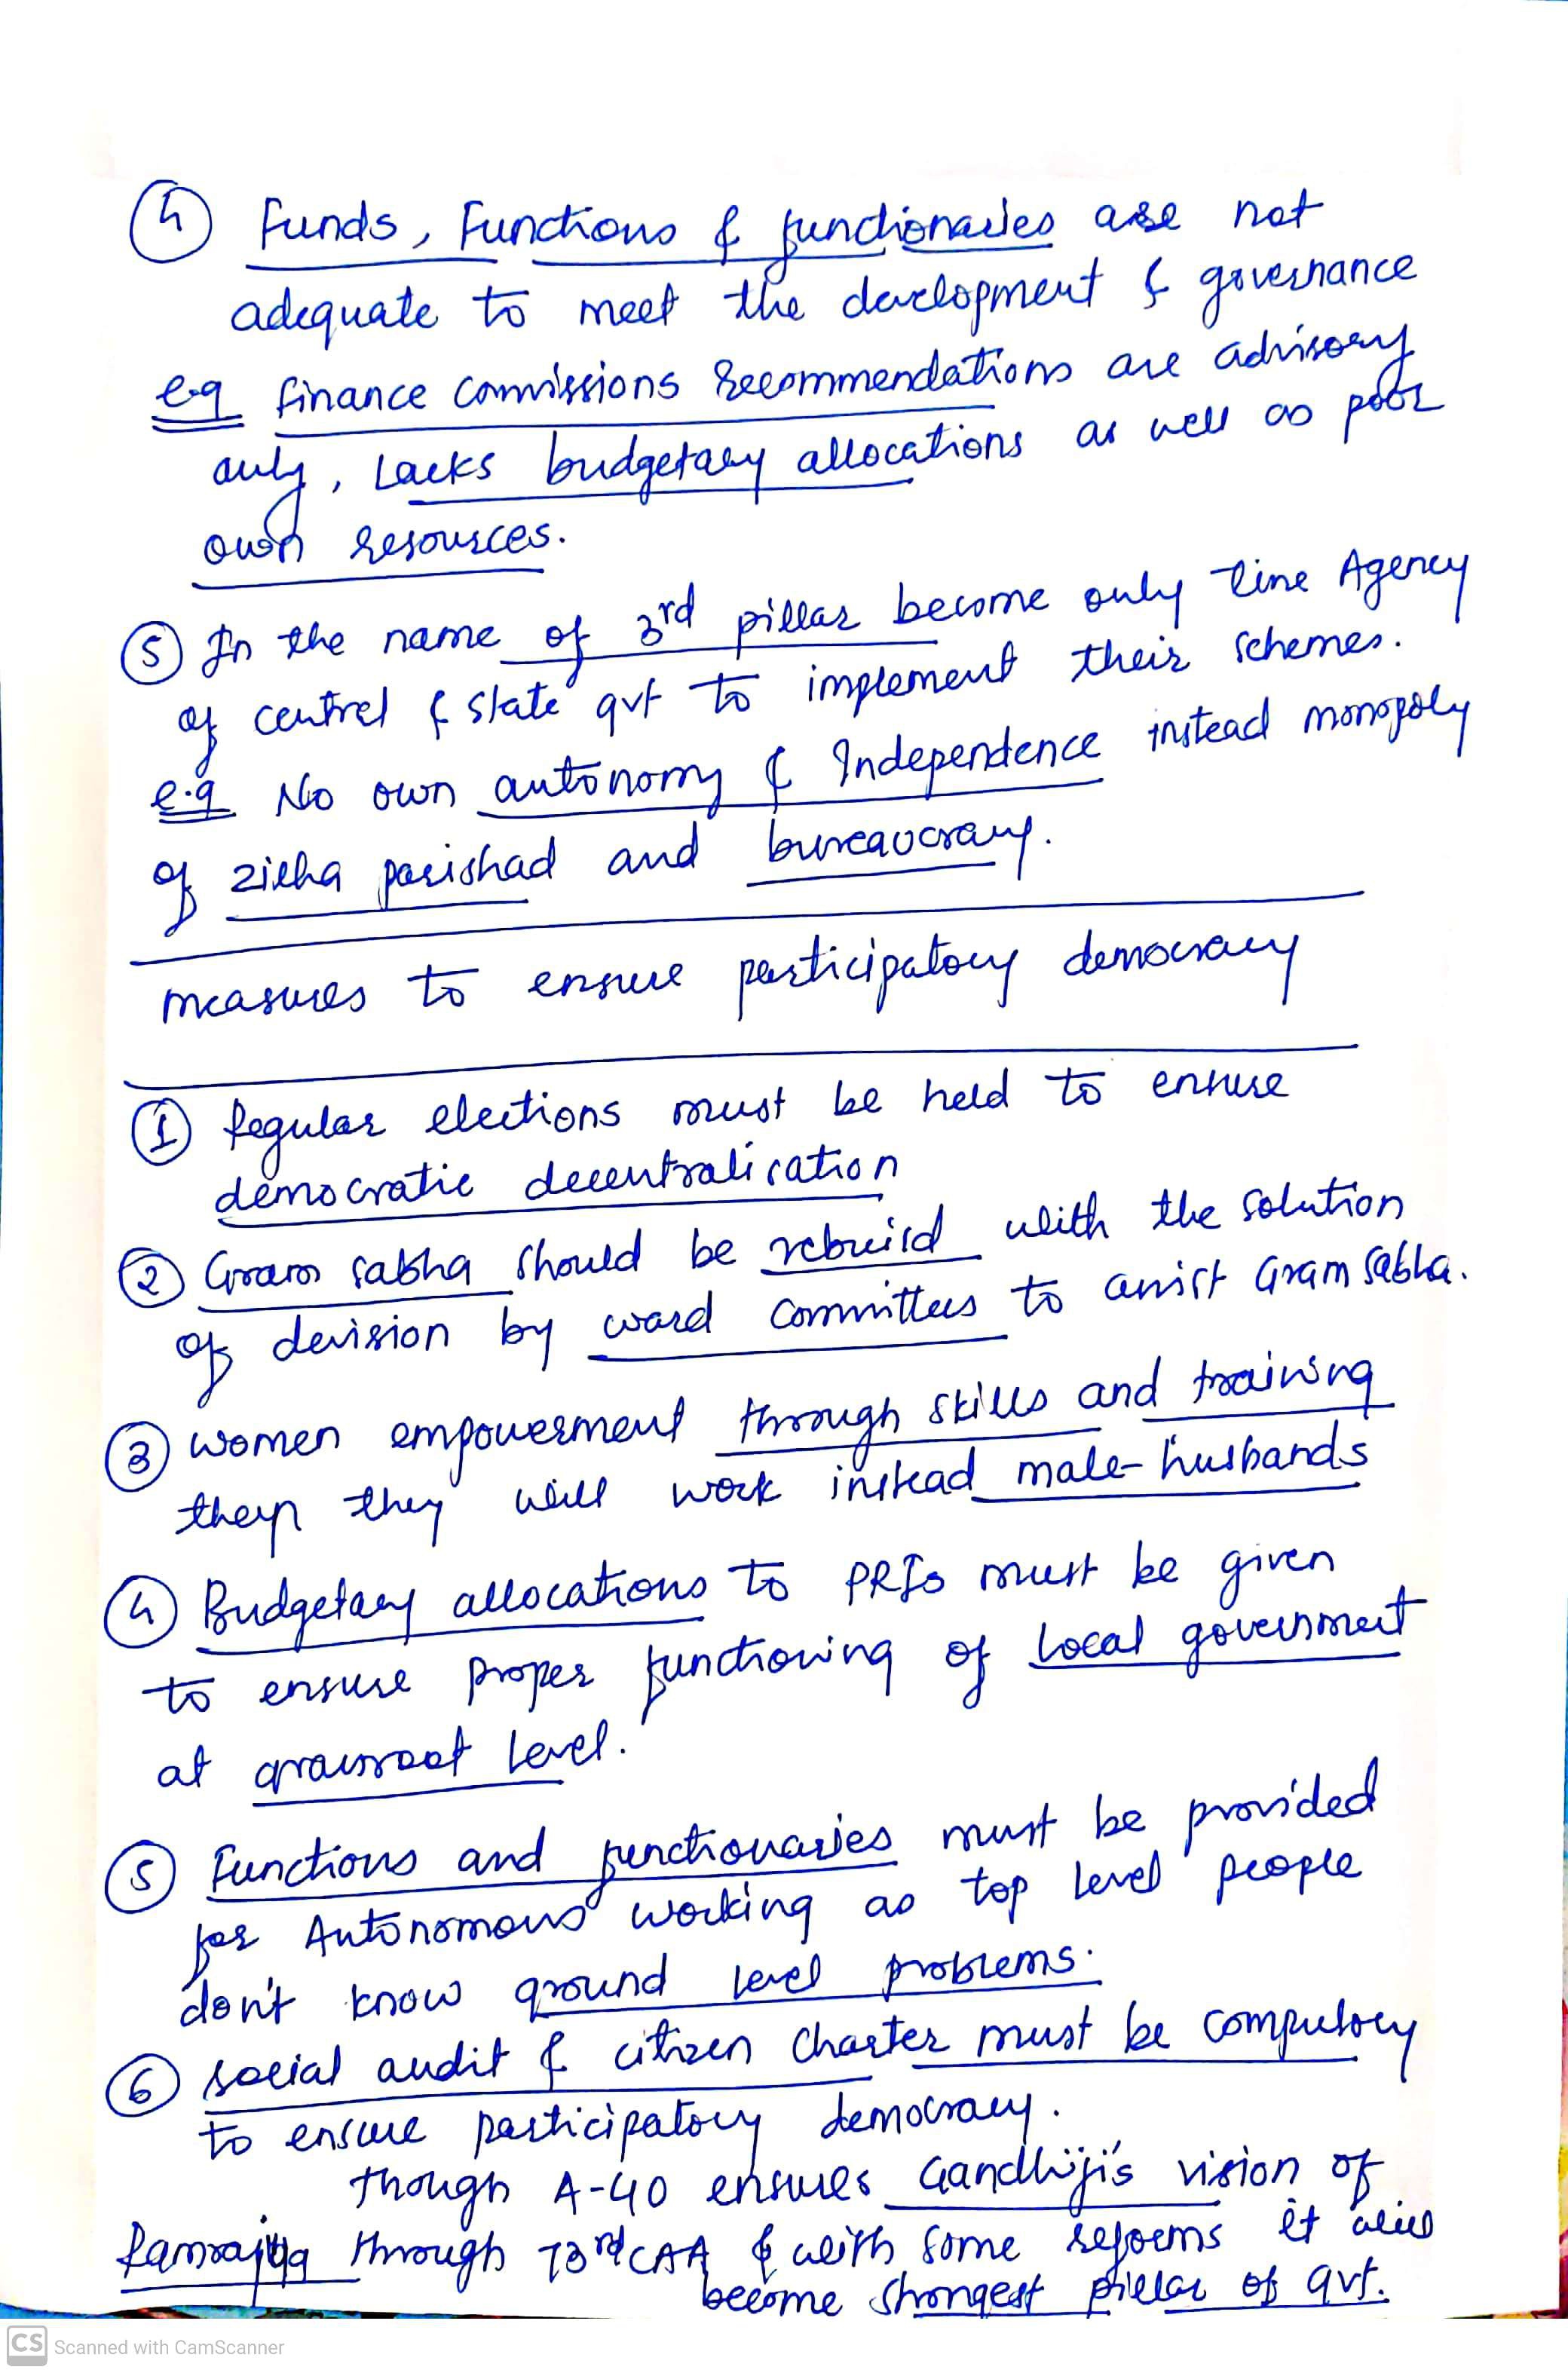 ④ Funds, Functions & functionaries are not
adequate to meet the development & governance
e.g finance commissions recommendations are advisory
only, Lacks budgetary allocations as well as poor
own resources.
⑤ In the name of 3rd pillar become only line Agency
of central & state gvt to implement their schemes.
e.g No own autonomy & Independence instead monopoly
of zilha parishad and bureaucracy.
measures to ensure participatory democracy
① Regular elections must be held to ensure
democratic decentralisation
② Gram sabha should be rebuild with the solution
of devision by ward committees to assist Gram Sabha.
③ women empowerment through skills and training
then they will work instead male-husbands
④ Budgetary allocations to PRIs must be given
to ensure proper functioning of local government
at grassroot level.
⑤ Functions and functionaries must be provided
for Autonomous working as top level people
don't know ground level problems.
⑥ social audit & citizen charter must be compulsory
to ensure participatory democracy.
Though A-40 ensures Gandhiji's vision of
Ramrajya through 73rd CAA & with some reforms it will
become strongest pillar of gvt.
CS Scanned with CamScanner